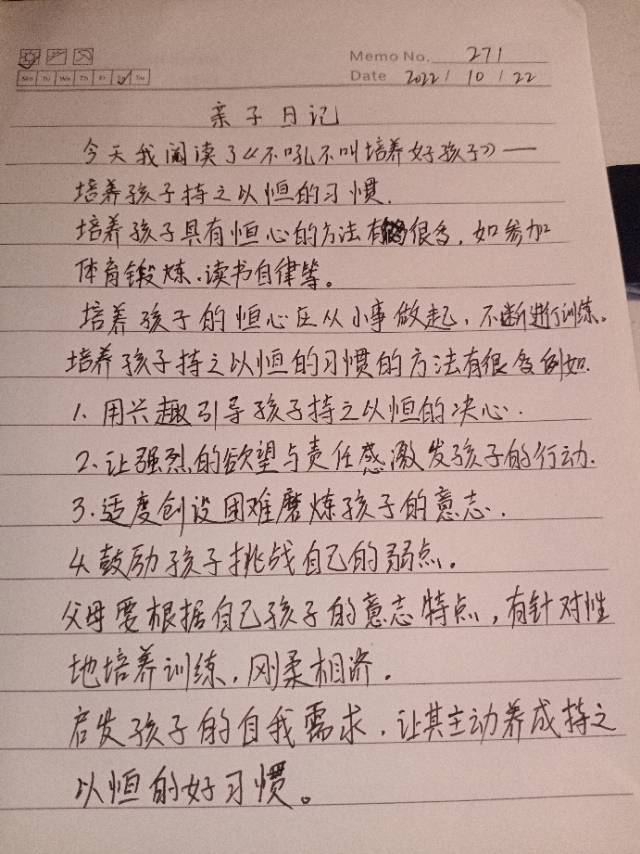 Memo No. 271
Mo Tu We Th Fr Su
Date 2022 / 10 / 22
亲子日记
今天我阅读了《不吼不叫培养好孩子》—
培养孩子持之以恒的习惯.
培养孩子具有恒心的方法有很多，如参加
体育锻炼.读书自律等。
培养孩子的恒心应从小事做起，不断进行训练。
培养孩子持之以恒的习惯的方法有很多例如.
1、用兴趣引导孩子持之以恒的决心.
2、让强烈的欲望与责任感激发孩子的行动.
3.适度创设困难磨炼孩子的意志.
4、鼓励孩子挑战自己的弱点。
父母要根据自己孩子的意志特点，有针对性
地培养训练，刚柔相济.
启发孩子的自我需求，让其主动养成持之
以恒的好习惯。